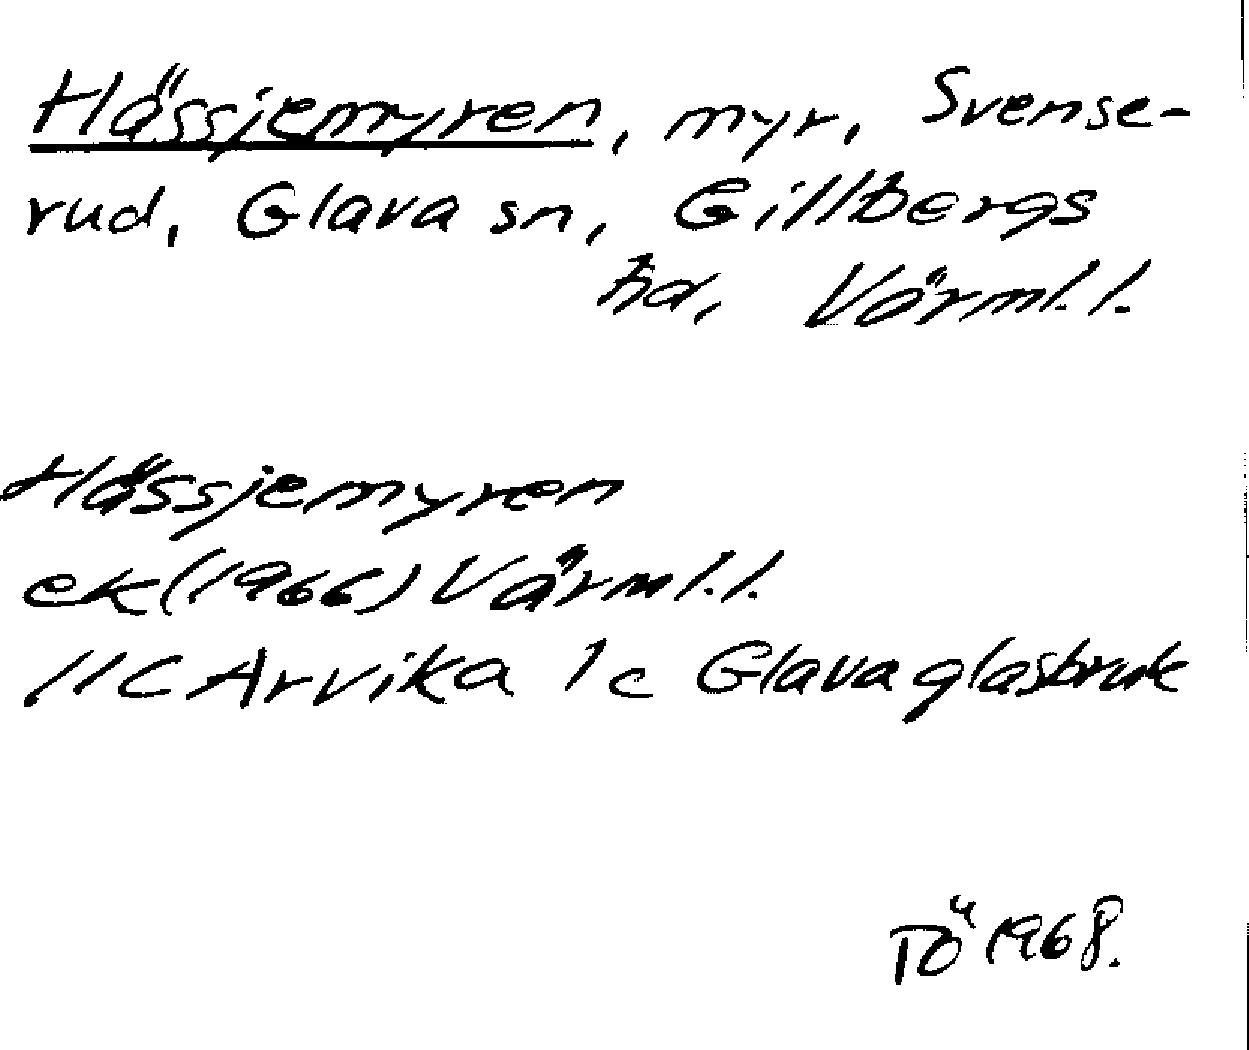 Hässjemyren, myr, Svense-
rud, Glava sn, Gillbergs
hd, Värml. l.
Hässjemyren
ek (1966) Värml. l.
11C Arvika 1c Glava glasbruk
TÖ 1968.